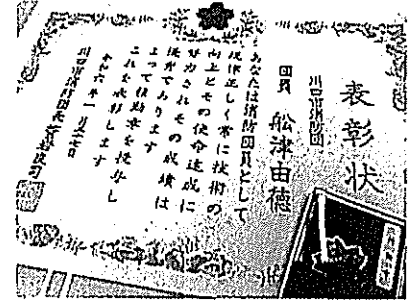 表彰状
川口市消防団
団員 船津由徳
あなたは消防団員として
規律正しく常に技術の
向上とその使命達成に
努力されその成績は
優秀であります
よって精勤章を授与し
これを表彰します
令和六年一月
川口市消防団長